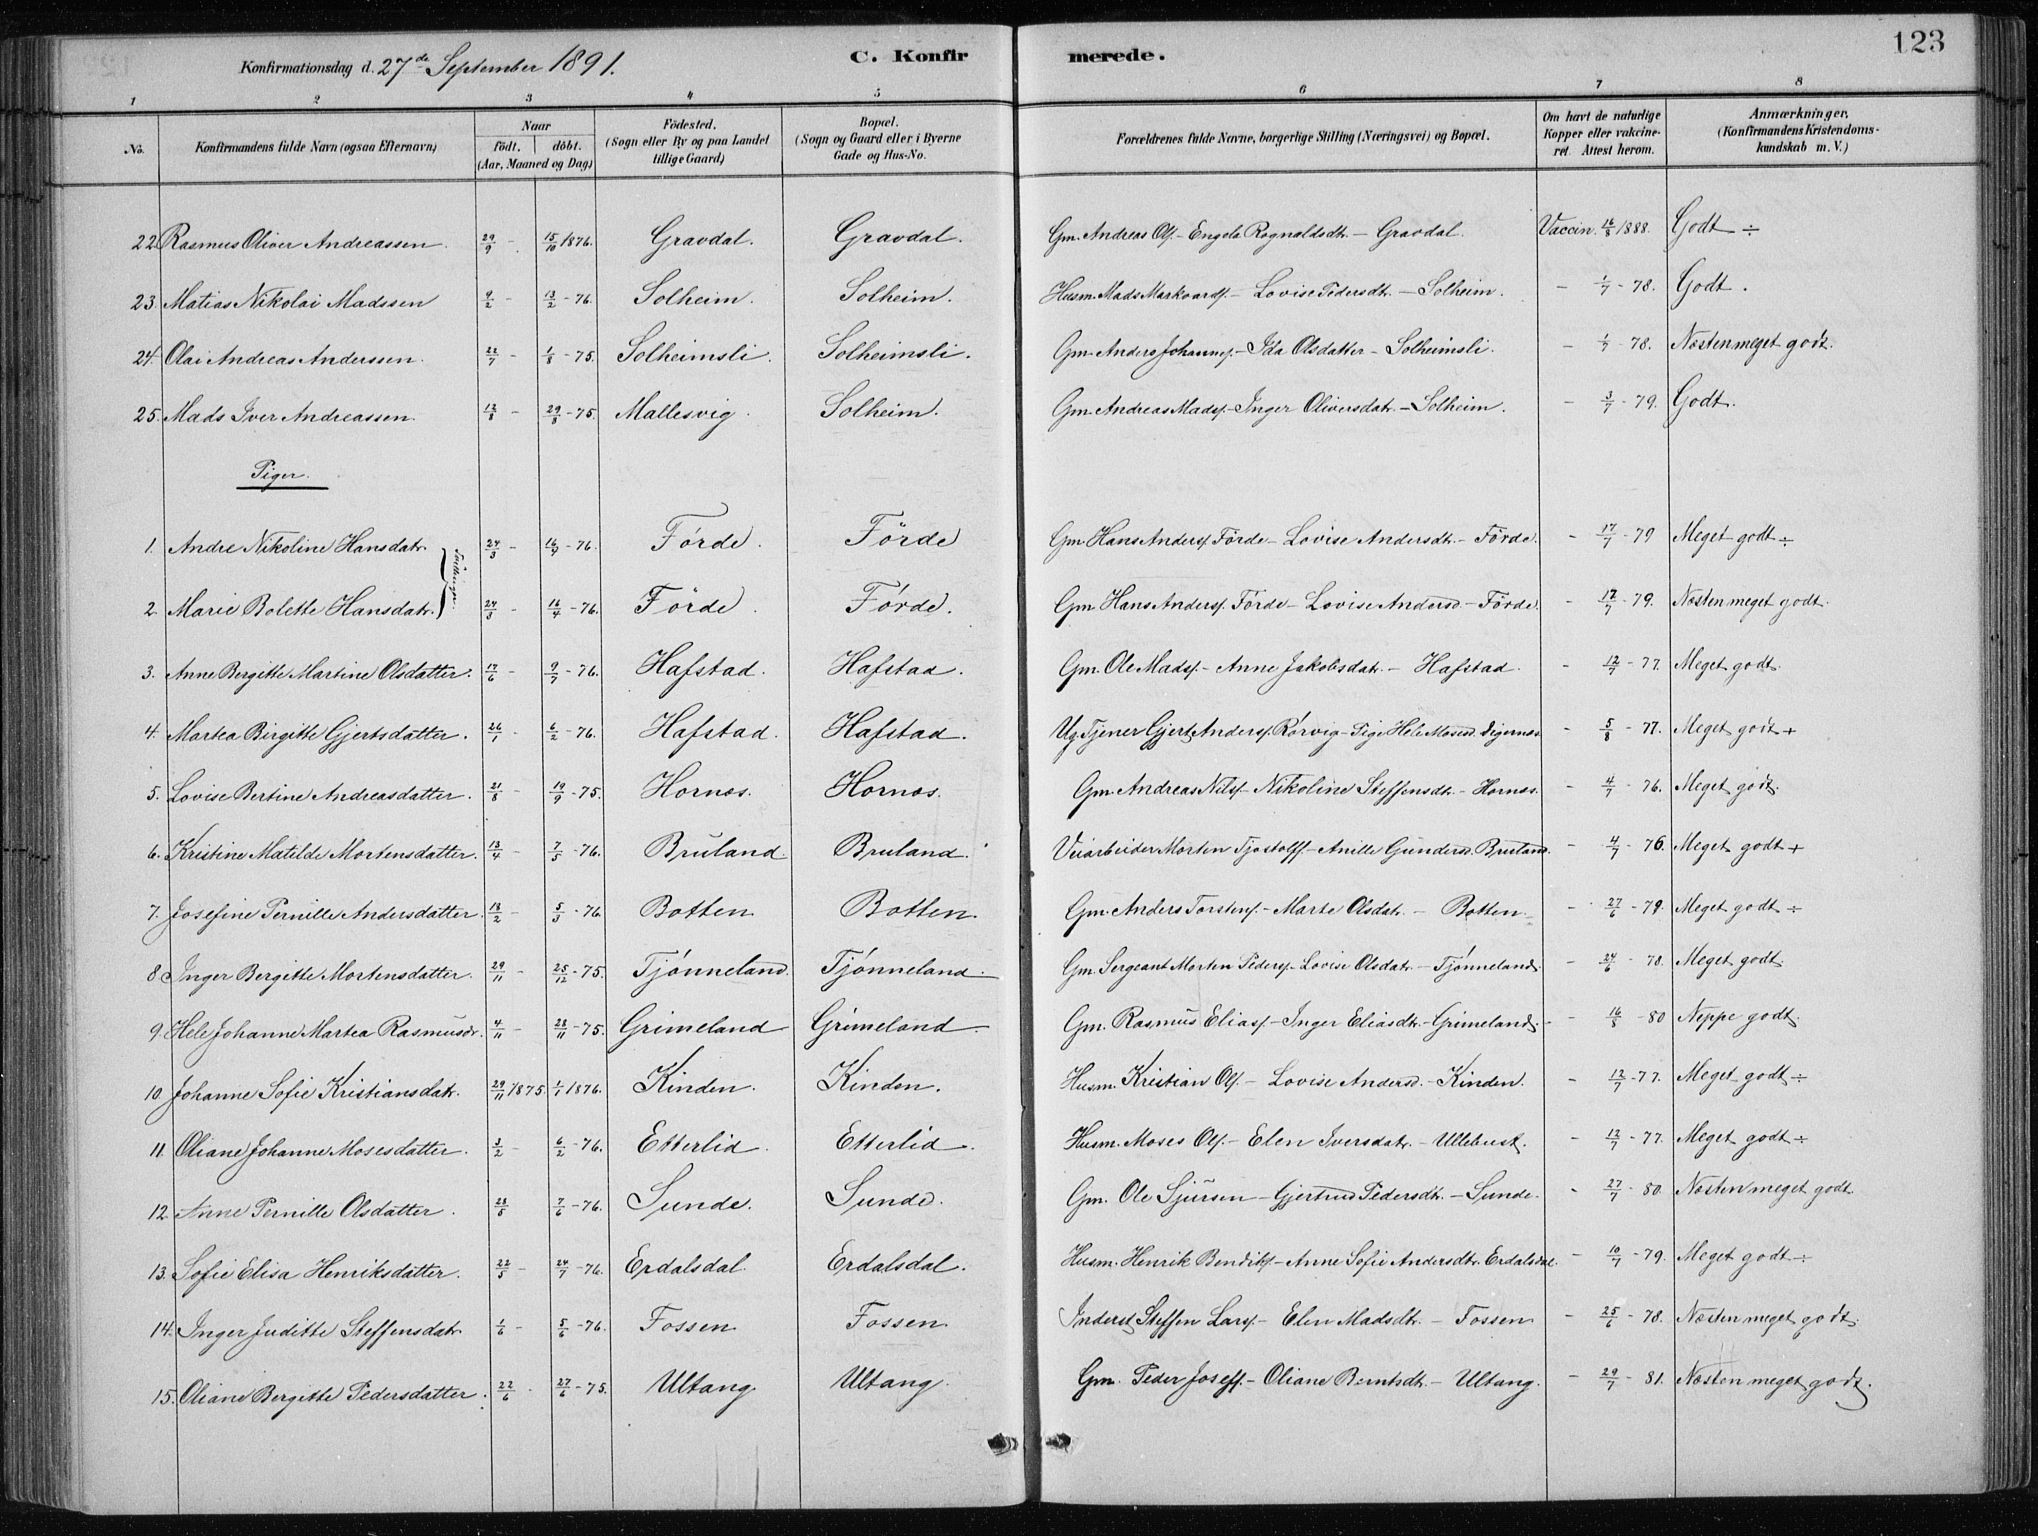 123
Konfirmationsdag d. 27de September 1891. C. Konfirmerede.
1 2 3 4 5 6 7 8
No. Konfirmandens fulde Navn (ogsaa Efternavn) Naar født. døbt. (Aar, Maaned og Dag) Fødested. (Sogn eller By og paa Landet tillige Gaard) Bopæl. (Sogn og Gaard eller i Byerne Gade og Hus-No. Forældrenes fulde Navne, borgerlige Stilling (Næringsvei) og Bopæl. Om havt de naturlige Kopper eller vakcineret. Attest herom. Anmærkninger. (Konfirmandens Kristendomskundskab m. V.)
22. Rasmus Oliver Andreassen. 29/9 - 15/10 1876. Gravdal. Gravdal. Gm. Andreas Ols. - Engela Rognaldsdt. - Gravdal. Vaccin. 16/8 1888. Godt ÷
23. Matias Nikolai Madssen 9/2 - 13/2 - 76. Solheim. Solheim. Husm. Mads Markvards. - Lovise Pedersdt. - Solheim. - 1/7 - 78. Godt.
24. Olai Andreas Anderssen. 22/7 - 1/8 - 75. Solheimsli. Solheimsli. Gm. Anders Johanns. - Ida Olsdatter - Solheimsli. - 1/7 - 78. Næsten meget godt.
25. Mads Iver Andreassen. 12/8 - 29/8 - 75. Mallesvig. Solheim. Gm. Andreas Mads. - Inger Oliversdatr. - Solheim. - 3/7 - 79. Godt.
Piger.
1. Andre Nikoline Hansdatr. 24/3 - 16/9 - 76. Førde. Førde Gm. Hans Anders. Førde - Lovise Andersdt. - Førde. - 17/7 - 79 Meget godt ÷
Tvillinger.
2. Marie Bolette Hansdatr. 24/3 - 16/4 - 76. Førde. Førde. Gm. Hans Anders. Førde - Lovise Andersd. - Førde. - 17/7 - 79. Næsten meget godt.
3. Anne Bergitte Martine Olsdatter. 17/6 - 9/7 - 76. Hafstad. Hafstad. Gm. Ole Mads. - Anne Jakobsdatr. - Hafstad. - 12/7 - 77. Meget godt.
4. Martea Birgitte Gjertsdatter. 26/1 - 6/2 - 76. Hafstad. Hafstad. Ug. Tjener Gjert Anders. Rørvig - Pige Hele Mosesd. Digernæs - 5/8 - 77. Meget godt +
5. Lovise Bertine Andreasdatter. 21/8 - 19/9 - 75. Hornæs. Hornæs. Gm. Andreas Nils. - Nikoline Steffensdt. - Hornæs. - 4/7 - 76. Meget godt.
6. Kristine Matilde Mortensdatter. 13/4 - 7/5 - 76. Bruland. Bruland. Veiarbeider Morten Tjostolfs. - Anille Gundersd. Bruland. - 4/7 - 76. Meget godt +
7. Josefine Pernille Andersdatter. 13/2 - 5/3 - 76 Botten Botten. Gm. Anders Torstens. - Marte Olsdatr. - Botten - 27/6 - 79. Meget godt ÷
8. Inger Bergitte Mortensdatter. 29/11 - 25/12 - 75. Tjønneland. Tjønneland. Gm. Sergeant Morten Peders. - Lovise Olsdatr. - Tjønneland. - 24/6 - 78. Meget godt.
9. Hele Johanne Martea Rasmusdr. 4/11 - 28/11 - 75. Grimeland Grimeland. Gm. Rasmus Elias. - Inger Eliasdtr. - Grimeland. - 16/8 - 80 Neppe godt.
10. Johanne Sofie Kristiansdatr. 29/11 1875. 1/1 1876. Kinden. Kinden. Husm. Kristian Ols. - Lovise Andersd. - Kinden. - 12/7 - 77. Meget godt ÷
11. Oliane Johanne Mosesdatter. 3/2 - 6/2 - 76. Etterlid. Etterlid. Husm. Moses Ols. - Elen Iversdatr. - Ullebust. - 12/7 - 77. Meget godt ÷
12. Anne Pernille Olsdatter. 28/5 7/6 - 76. Sunde. Sunde. Gm. Ole Sjursen - Gjertrud Pedersdt. - Sunde. - 27/7 - 80. Næsten meget godt.
13. Sofie Elisa Henriksdatter. 22/5 - 24/7 - 76. Erdalsdal. Erdalsdal. Husm. Henrik Bendiks. - Anne Sofie Andersdtr. Erdalsdal. - 10/7 - 79. Meget godt ÷
14. Inger Juditte Steffensdatr 1/6 - 5/6 - 76. Fossen Fossen Inderst Steffen Lars. - Elen Madsdtr. - Fossen - 25/6 - 78. Næsten meget godt.
15. Oliane Bergitte Pedersdatter. 22/6 - 27/6 - 75. Ultang. Ultang. Gm. Peder Josefs. - Oliane Berntsdt. - Ultang. - 29/7 - 81. Næsten meget godt.